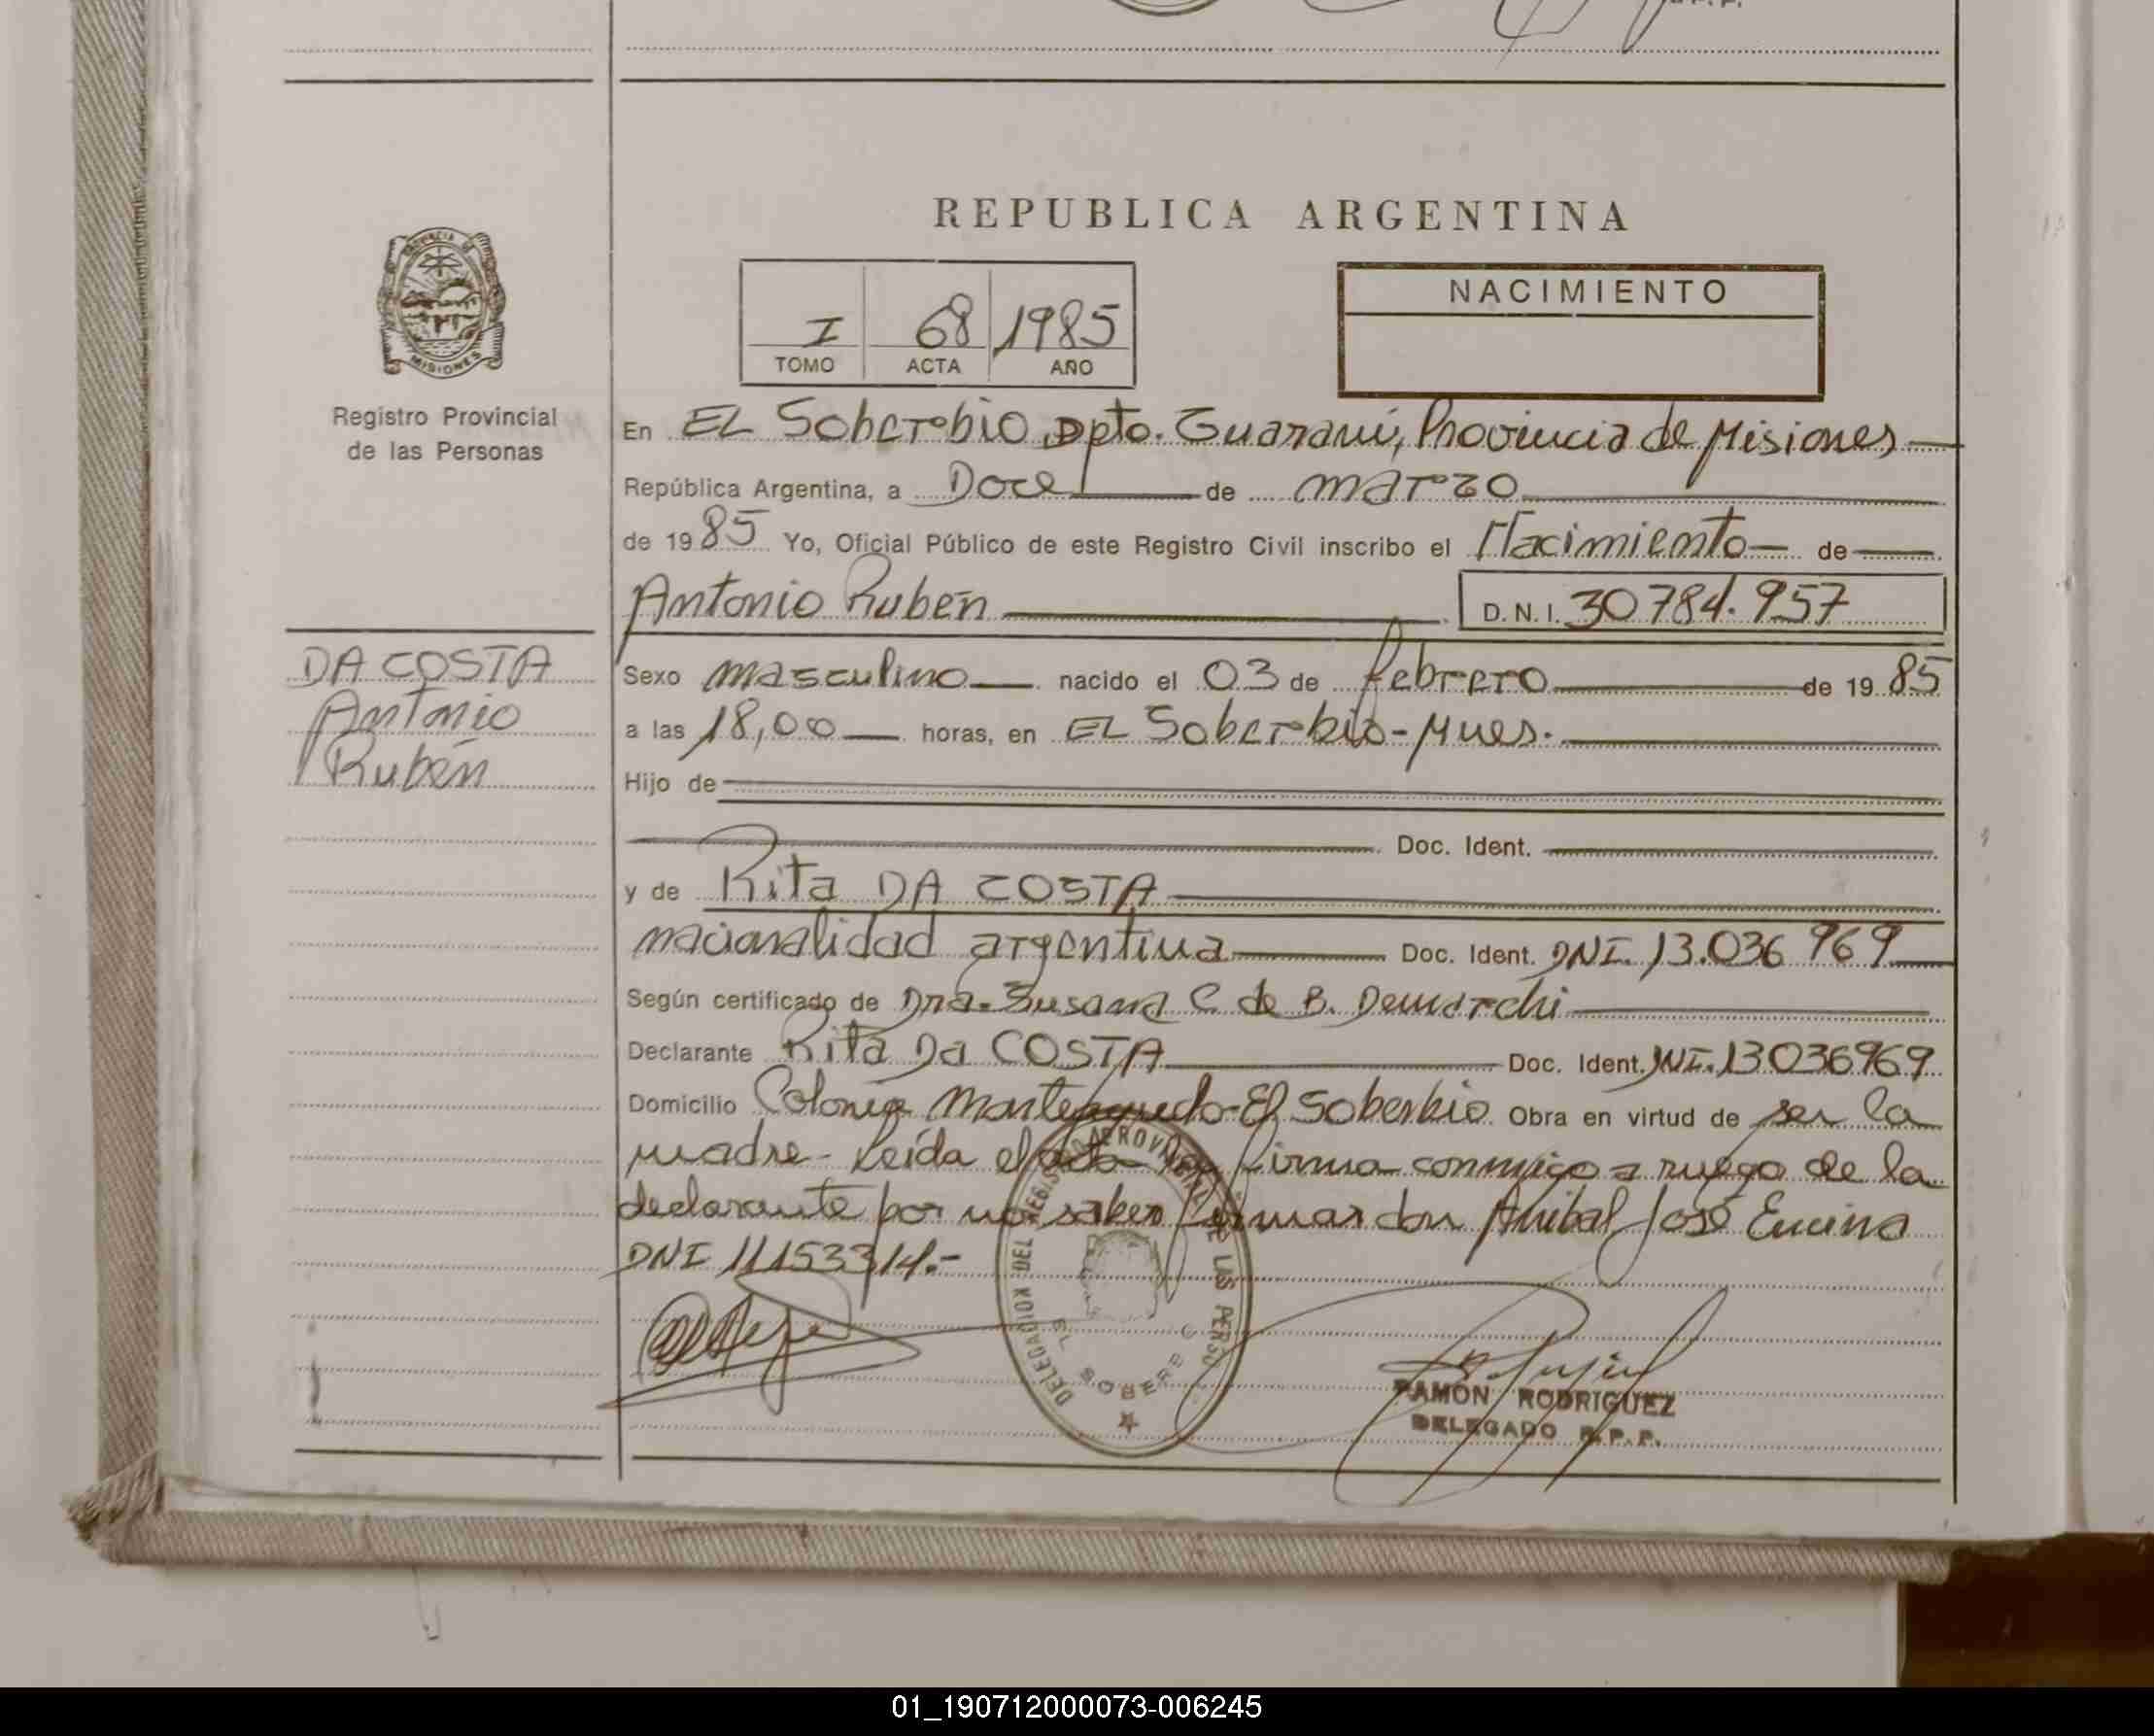 REPUBLICA ARGENTINA
PROVINCIA DE
MISIONES
Registro Provincial
de las Personas
I 68 1985
TOMO ACTA AÑO
NACIMIENTO
En EL Soberbio, Dpto. Guaraní, Provincia de Misiones
República Argentina, a Doce de marzo
de 1985 Yo, Oficial Público de este Registro Civil inscribo el Nacimiento de
Antonio Rubén D.N.I. 30784.957
DA COSTA
Antonio
Rubén
Sexo masculino nacido el 03 de febrero de 1985
a las 18,00 horas, en EL Soberbio-Mnes.
Hijo de
Doc. Ident.
y de Rita DA COSTA
nacionalidad argentina Doc. Ident. DNI. 13.036 969
Según certificado de Dra. Susana C de B. Demarchi
Declarante Rita Da COSTA Doc. Ident. DNI. 13036969
Domicilio Colonia Monteagudo-El Soberbio Obra en virtud de ser la
madre- Leída el acta la firma conmigo a ruego de la
declarante por no saber firmar don Anibal José Encina
DNI 11153314.-
DELEGACION DEL REGISTRO PROVINCIAL DE LAS PERSO
EL SOBERB O
RAMON RODRIGUEZ
DELEGADO R.P.P.
01_190712000073-006245